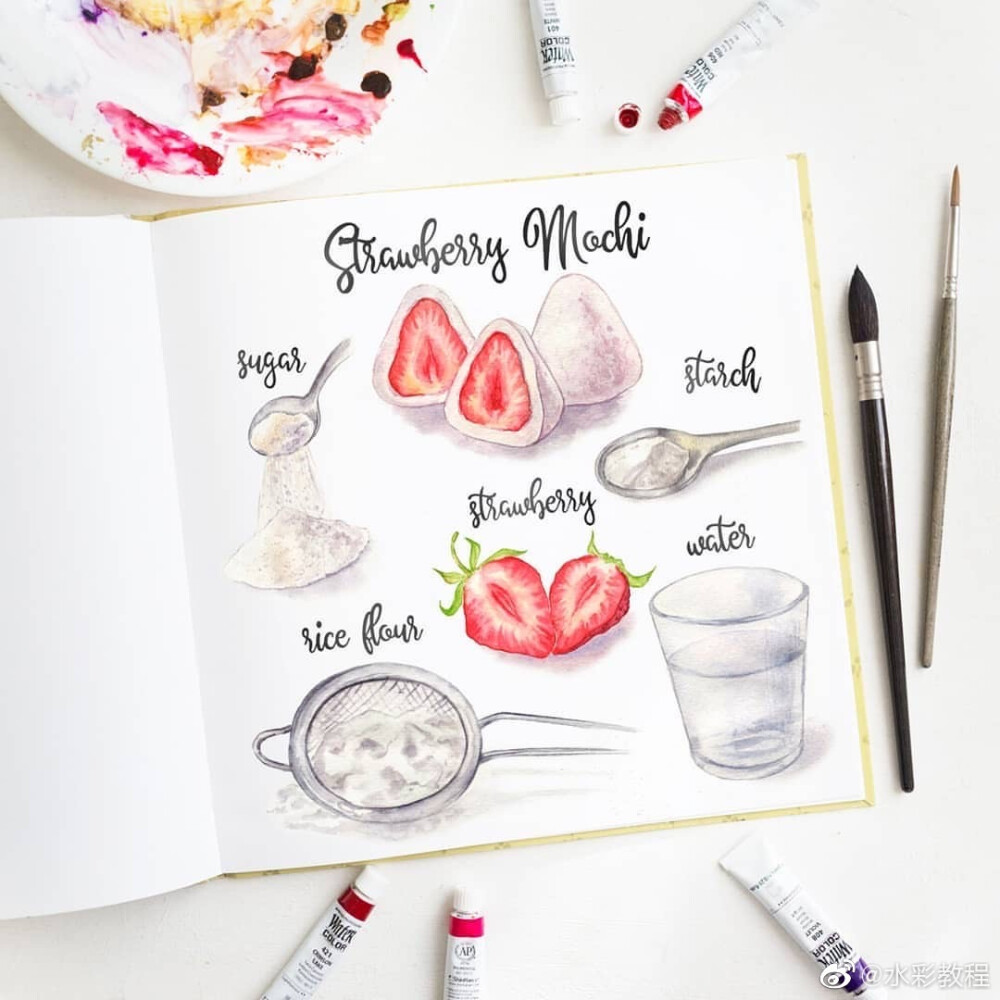 401
WATER
COLOR
WATER
COLOR
Strawberry Mochi
sugar
starch
strawberry
water
rice flour
WATER
COLOR
421
CRIMSON
LAKE
WATER
COLOR
408
VIOLET
@水彩教程